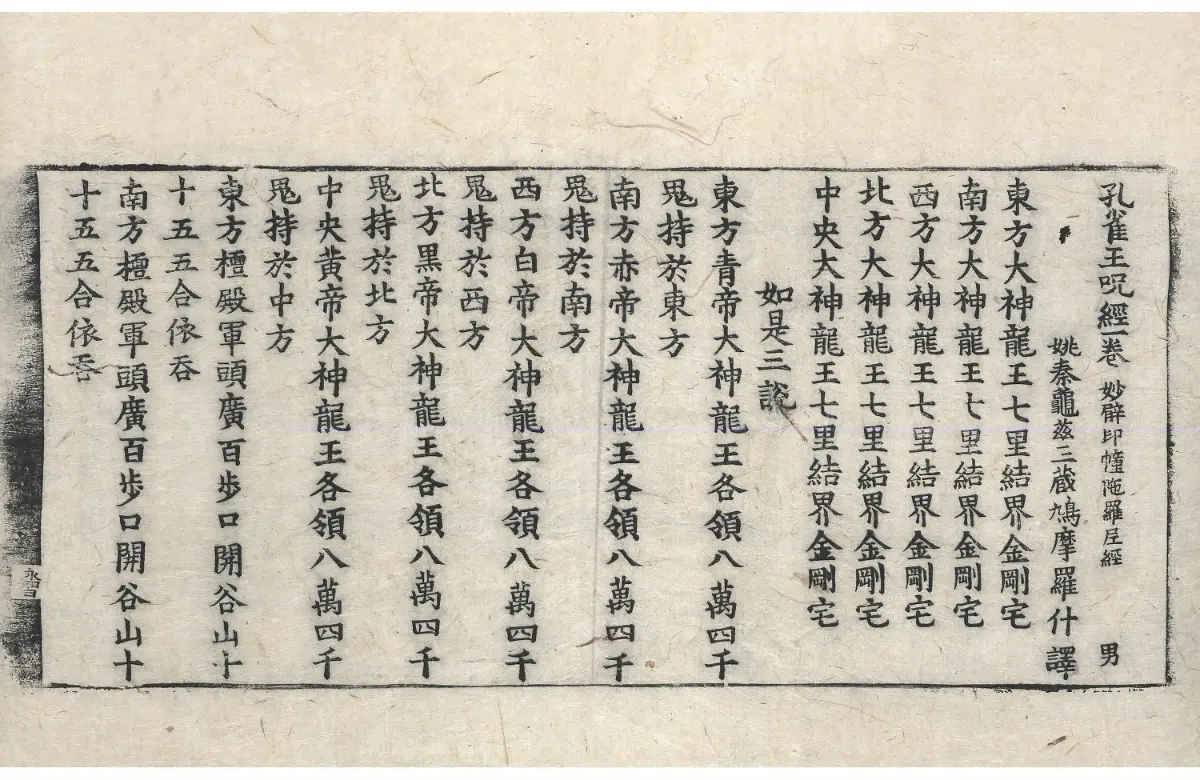 孔雀王呪經一卷 妙辟印幢陁羅尼經 男
姚秦龜茲三蔵鳩摩羅什譯
東方大神龍王七里結界金剛宅
南方大神龍王七里結界金剛宅
西方大神龍王七里結界金剛宅
北方大神龍王七里結界金剛宅
中央大神龍王七里結界金剛宅
如是三說
東方青帝大神龍王各領八萬四千
鬼持於東方
南方赤帝大神龍王各領八萬四千
鬼持於南方
西方白帝大神龍王各領八萬四千
鬼持於西方
北方黒帝大神龍王各領八萬四千
鬼持於北方
中央黄帝大神龍王各領八萬四千
鬼持於中方
東方檀殿軍頭廣百步口開谷山十
十五五合依吞
南方檀殿軍頭廣百步口開谷山十
十五五合依吞